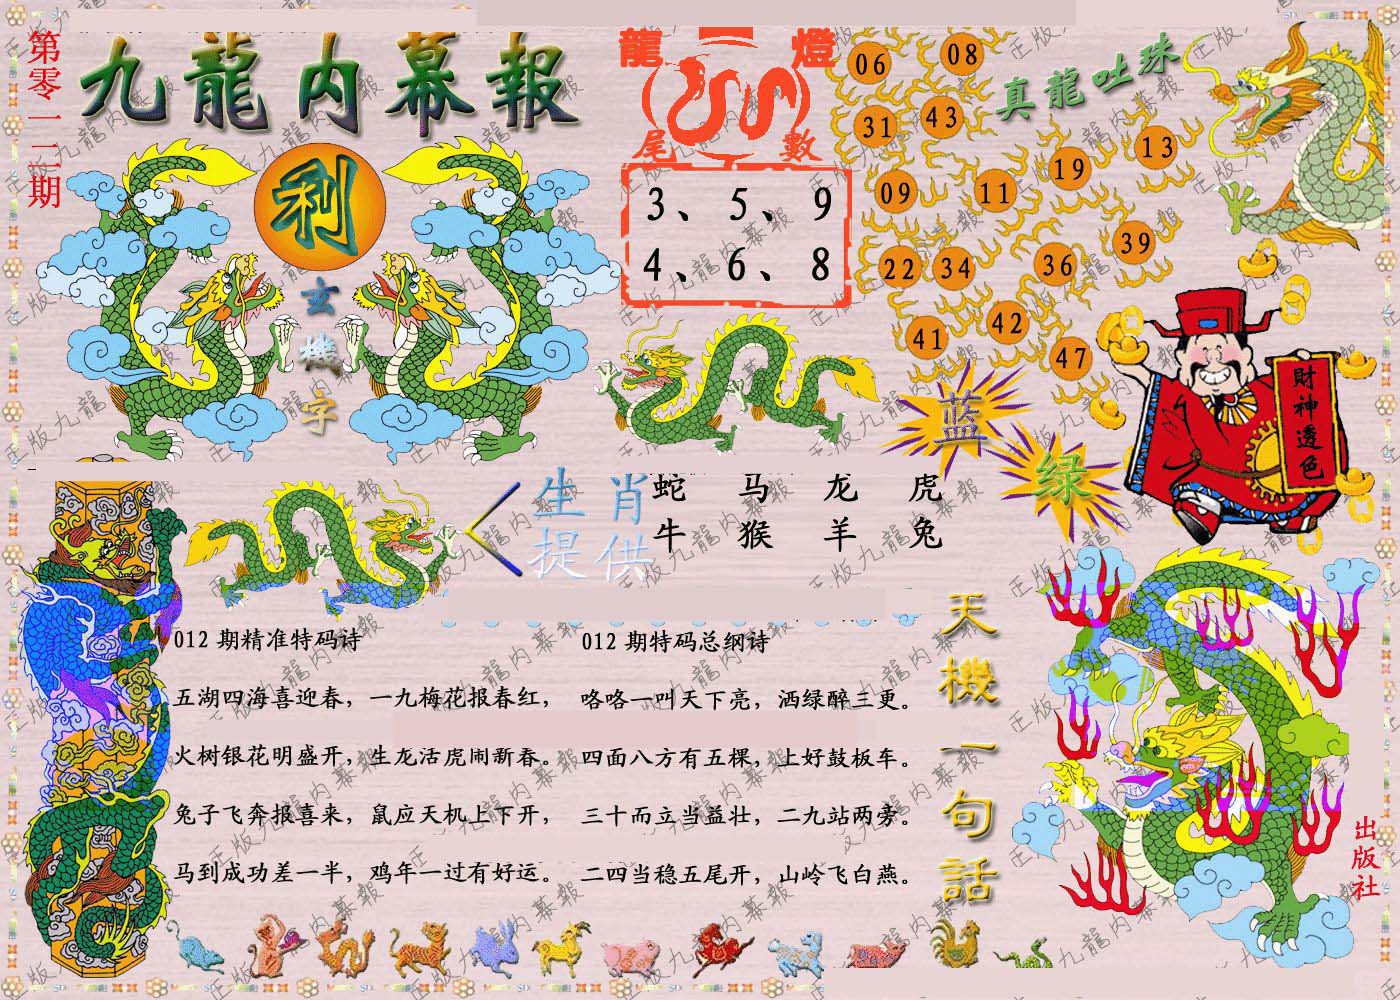 第零一二期
九龍内幕報
利
玄機字
龍燈
尾數
3、5、9
4、6、8
真龍吐珠
06 08
31 43
19 13
09 11
22 34 36 39
41 42 47
財神透色
蓝
绿
生肖
提供
蛇 马 龙 虎
牛 猴 羊 兔
012 期精准特码诗
五湖四海喜迎春，一九梅花报春红，
火树银花明盛开，生龙活虎闹新春。
兔子飞奔报喜来，鼠应天机上下开，
马到成功差一半，鸡年一过有好运。
012 期特码总纲诗
咯咯一叫天下亮，洒绿醉三更。
四面八方有五棵，上好鼓板车。
三十而立当益壮，二九站两旁。
二四当稳五尾开，山岭飞白燕。
天機一句話
出版社
正版九龍内幕報